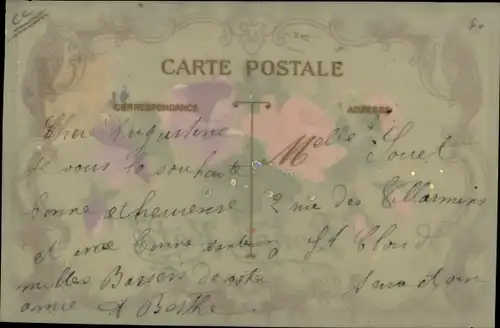 CARTE POSTALE
CORRESPONDANCE
ADRESSE
Chere Augustine
Je vous la souhaite
bonne et heureuse
et une bonne santée
milles Baisers de votre
amie Berthe
Melle
2 rue des
St Cloud
Seine et oise